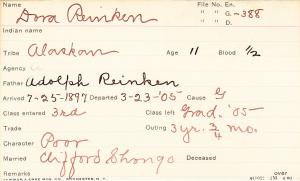 Name Dora Reinken File No. En.
G.-388
Indian name
Tribe Alaskan Age 11 Blood 1/2
Agency
Father Adolph Reinken
Arrived 7-25-1897 Departed 3-23-'05 Cause G
Class entered 3rd Class left Grad. '05
Trade Outing 3 yr. 3/4 mo.
Character Poor
Married Clifford Shongo Deceased
Remarks
over